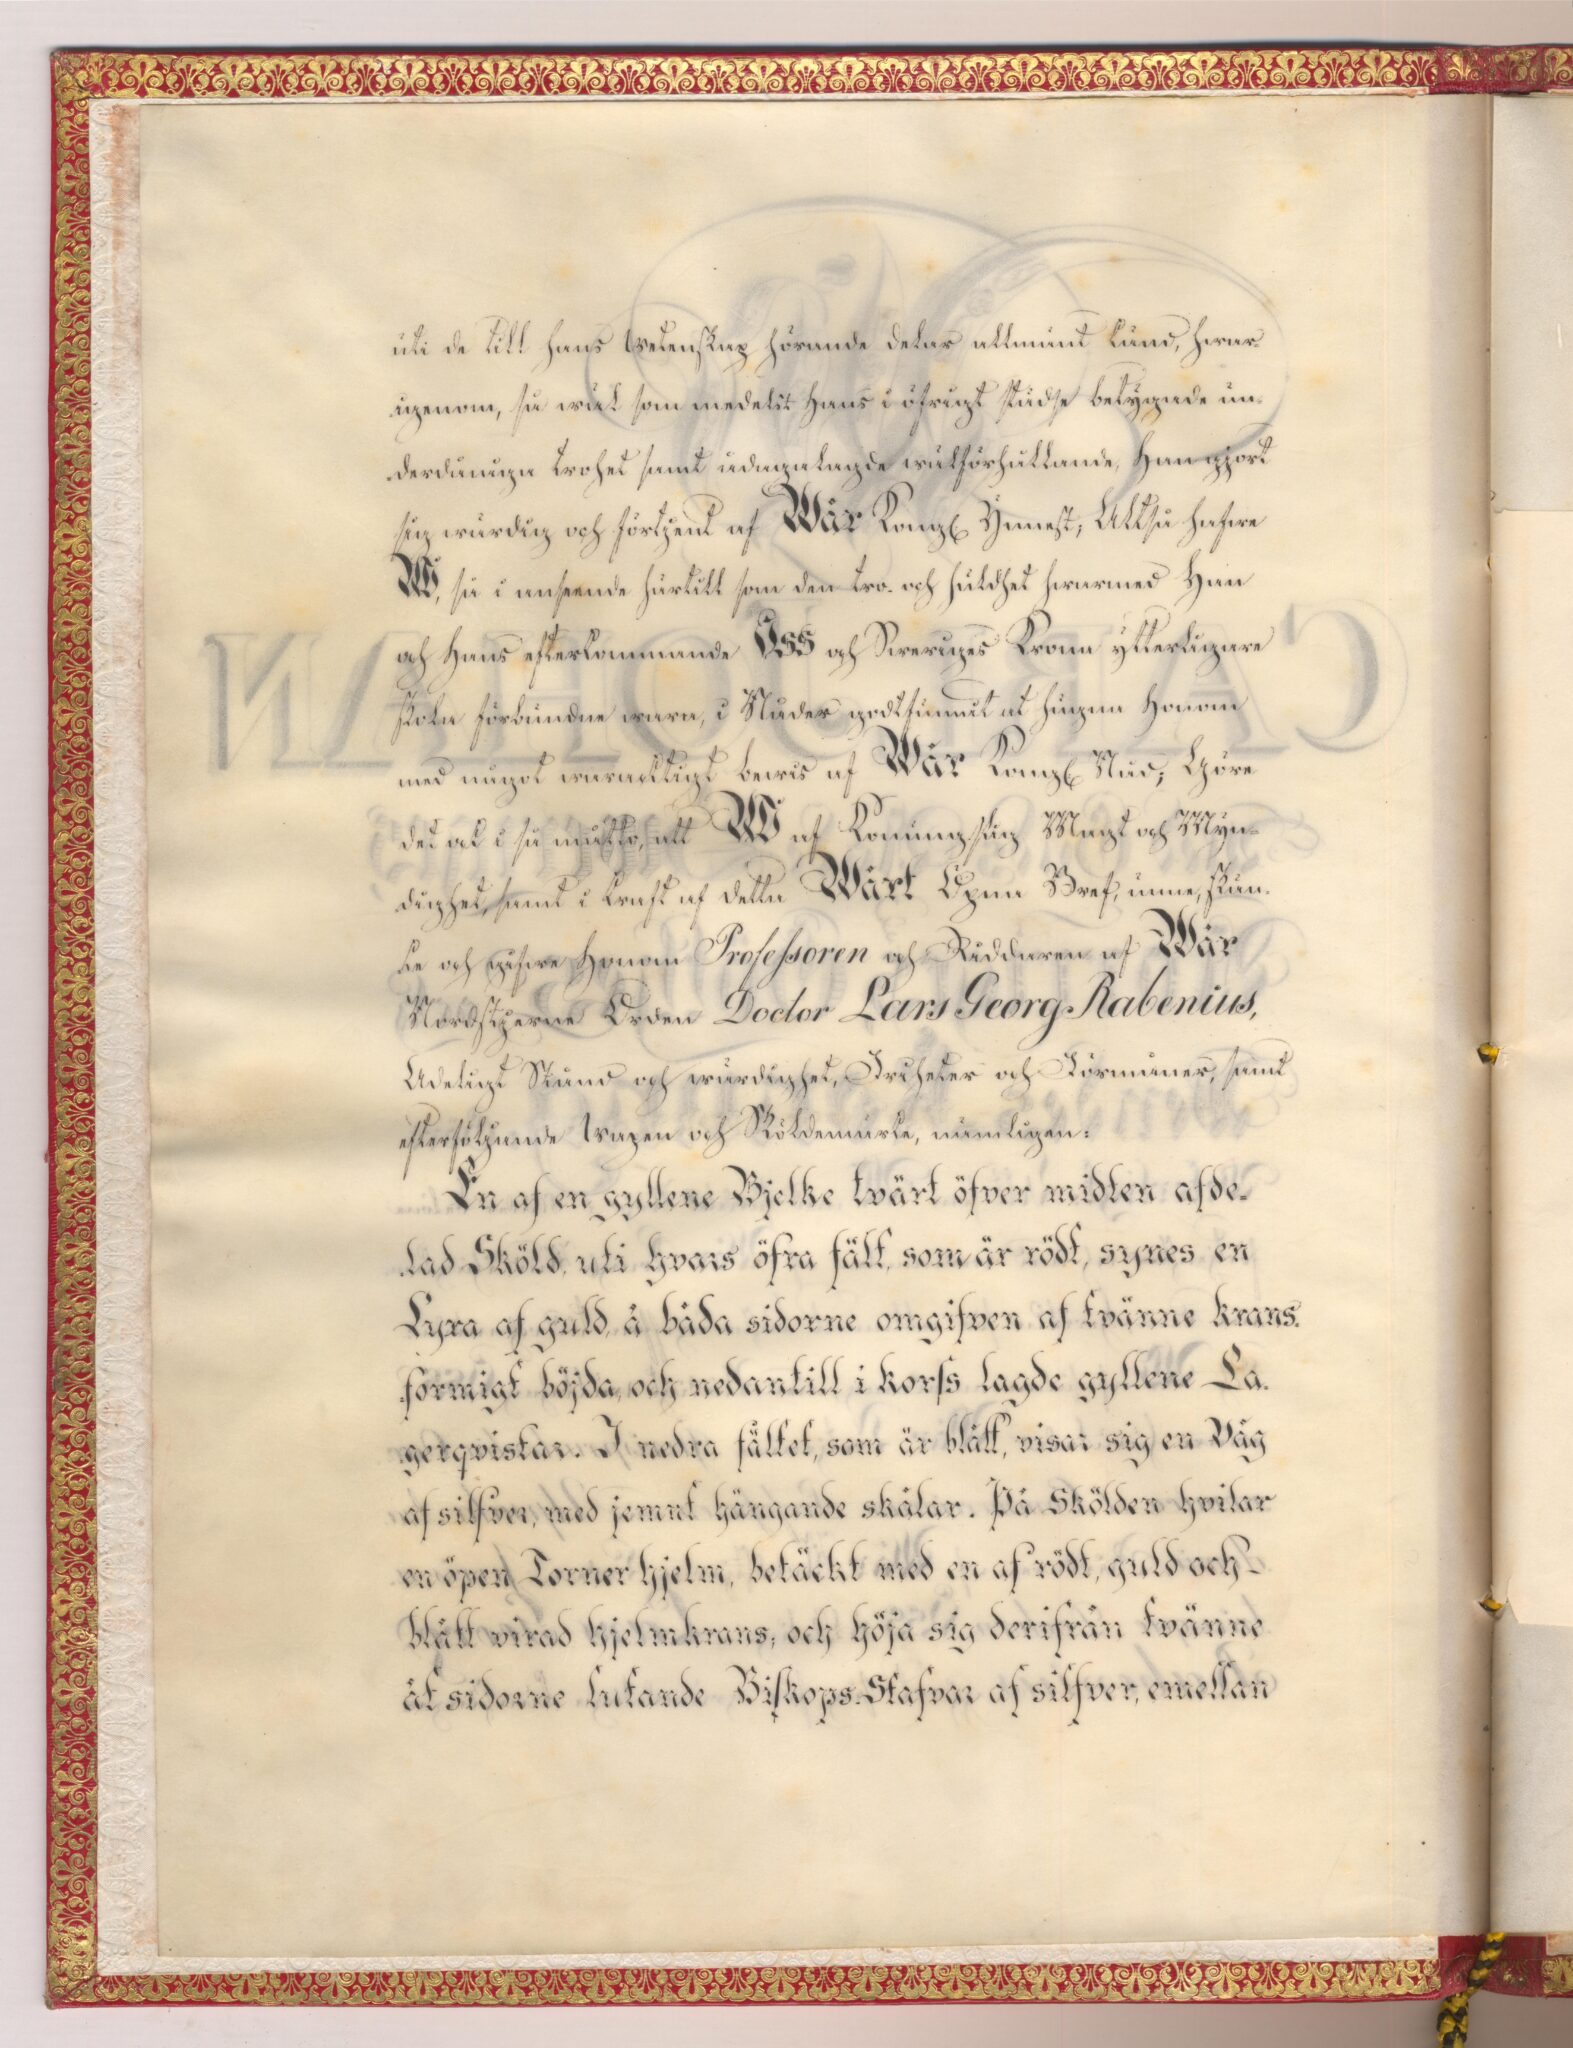 uti de till hans Wetenskap hörande delar allmänt känd, hwar-
igenom, så wäl som medelst Hans i öfrigt städse betygade un-
derdåniga trohet samt ådagalagde wälförhållande, Han gjort
sig wärdig och förtjent af Wår Kongl Ynnest; Altså hafwe
Wi, så i anseende härtill som den tro- och huldhet hwarmed Han
och Hans efterkommande Oss och Sweriges Krona ytterligare
skola förbundne wara, i Nåder godtfunnit at hugna Honom
med något waracktigt bewis af Wår Kongl Nåd; Göre
det ock i så måtto, att Wi af Konungslig Magt och Myn-
dighet, samt i kraft af detta Wårt Öpna Bref, unne, skän-
ke och gifwe Honom Professoren och Riddaren af Wår
Nordstjerne Orden Doctor Lars Georg Rabenius,
Adeligt Stånd och wärdighet, Friheter och Förmåner, samt
efterföljande Wapen och Sköldemärke, nämligen:
En af en gyllene Bjelke tvärt öfver midten afde-
lad Sköld, uti hvars öfra fält, som är rödt, synes en
Lyra af guld, å båda sidorne omgifven af tvänne krans-
formigt böjda, och nedantill i korss lagde gyllene La-
gerqvistar. I nedra fältet, som är blått, visar sig en Våg
af silfver, med jemnt hängande skålar. På Skölden hvilar
en öpen Torner hjelm, betäckt med en af rödt, guld och
blått virad hjelmkrans, och höja sig derifrån tvänne
åt sidorne lutande Biskops-Stafvar af silfver, emellan